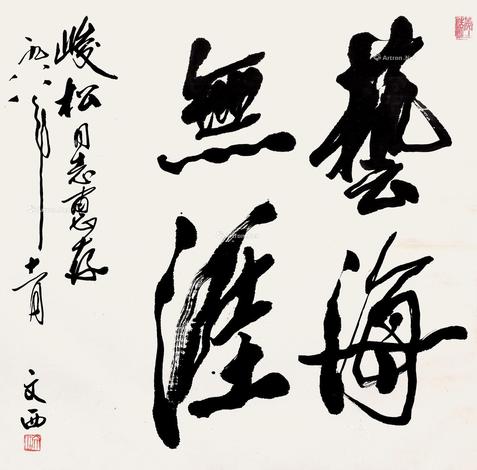 藝海
無涯
峻松同志惠存
一九八八年十一月
文西